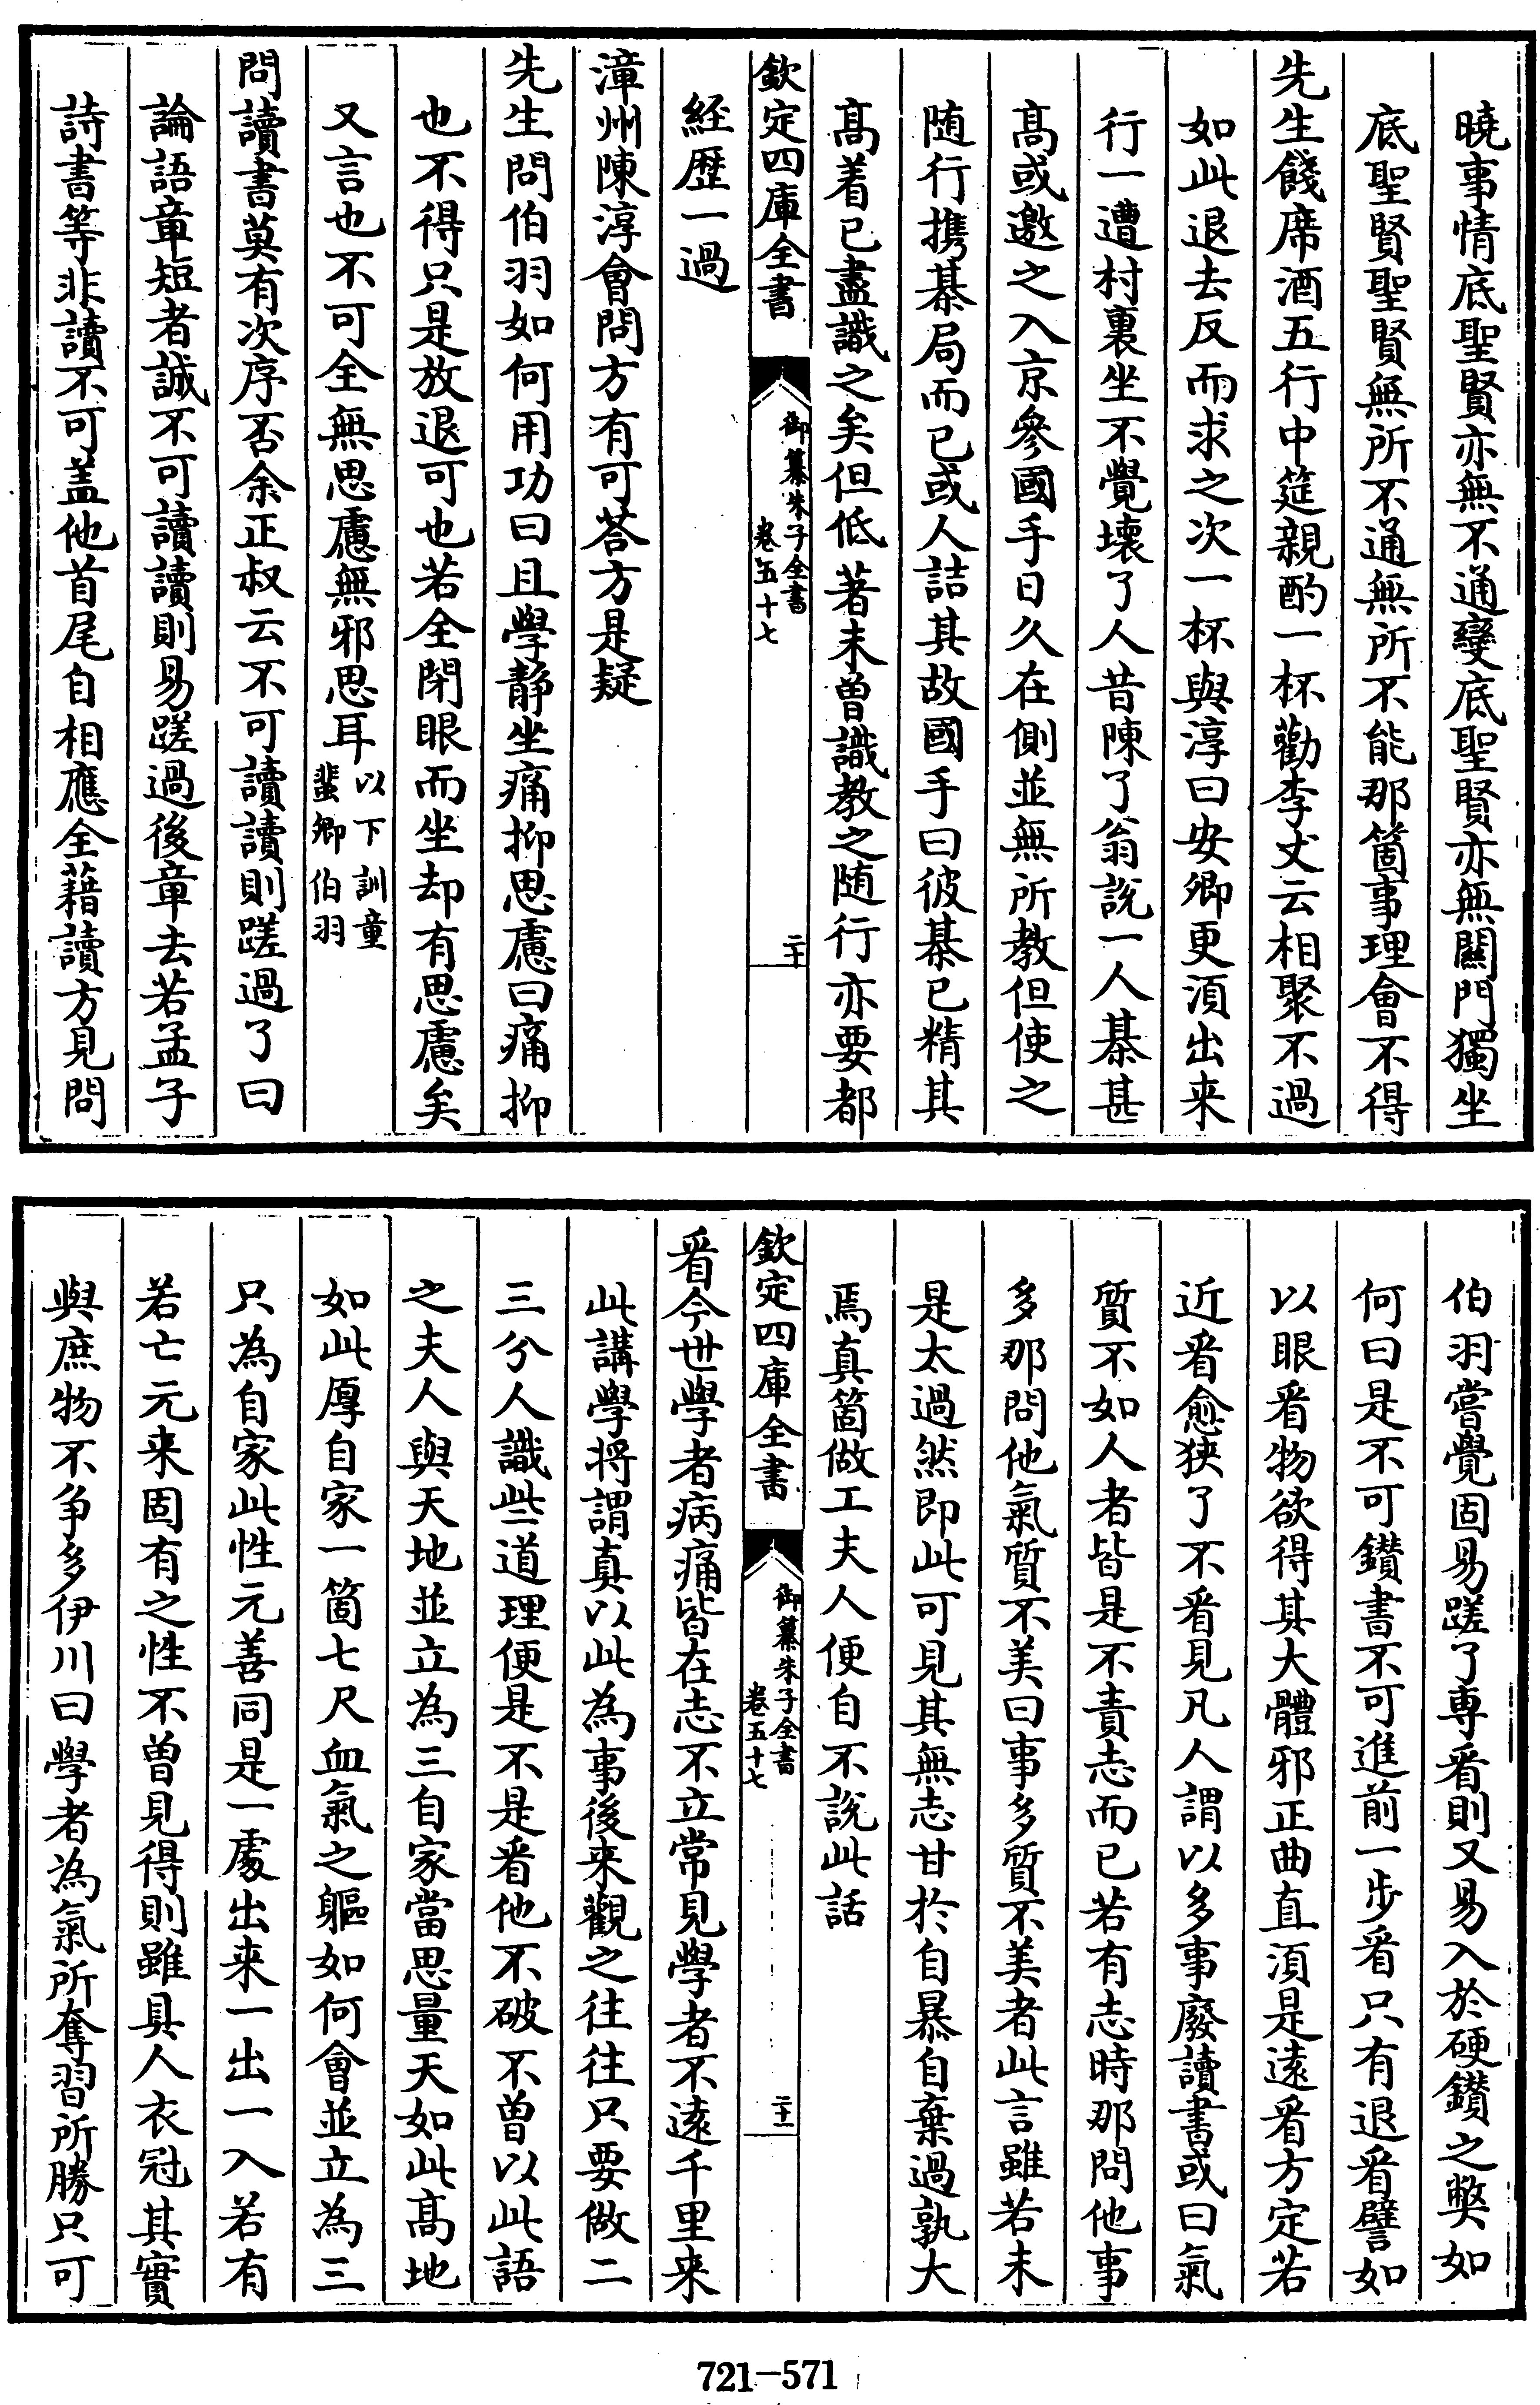 曉事情底聖賢亦無不通變底聖賢亦無關門獨坐
底聖賢聖賢無所不通無所不能那箇事理會不得
先生餞席酒五行中筵親酌一杯勸李丈云相聚不過
如此退去反而求之次一杯與淳曰安卿更須出来
行一遭村裏坐不覺壞了人昔陳了翁說一人碁甚
髙或邀之入京參國手日久在側並無所教但使之
随行携碁局而已或人詰其故國手曰彼碁已精其
髙着已盡識之矣但低著未曾識教之随行亦要都
欽定四庫全書
御纂朱子全書
卷五十七
二十
経歴一過
漳州陳淳會問方有可荅方是疑
先生問伯羽如何用功曰且學静坐痛抑思慮曰痛抑
也不得只是放退可也若全閉眼而坐却有思慮矣
又言也不可全無思慮無邪思耳以下訓童
蜚卿伯羽
問讀書莫有次序否余正叔云不可讀讀則蹉過了曰
論語章短者誠不可讀讀則易蹉過後章去若孟子
詩書等非讀不可盖他首尾自相應全藉讀方見問
伯羽嘗覺固易蹉了專看則又易入於硬鑚之獘如
何曰是不可鑚書不可進前一步看只有退看譬如
以眼看物欲得其大體邪正曲直須是遠看方定若
近看愈狹了不看見凡人謂以多事廢讀書或曰氣
質不如人者皆是不責志而已若有志時那問他事
多那問他氣質不美曰事多質不美者此言雖若未
是太過然即此可見其無志甘於自暴自棄過孰大
焉真箇做工夫人便自不說此話
欽定四庫全書
御纂朱子全書
卷五十七
二十一
看今世學者病痛皆在志不立常見學者不遠千里来
此講學将謂真以此為事後来觀之往往只要做二
三分人識些道理便是不是看他不破不曾以此語
之夫人與天地並立為三自家當思量天如此髙地
如此厚自家一箇七尺血氣之軀如何會並立為三
只為自家此性元善同是一處出来一出一入若有
若亡元来固有之性不曾見得則雖具人衣冠其實
與庶物不争多伊川曰學者為氣所奪習所勝只可
721-571